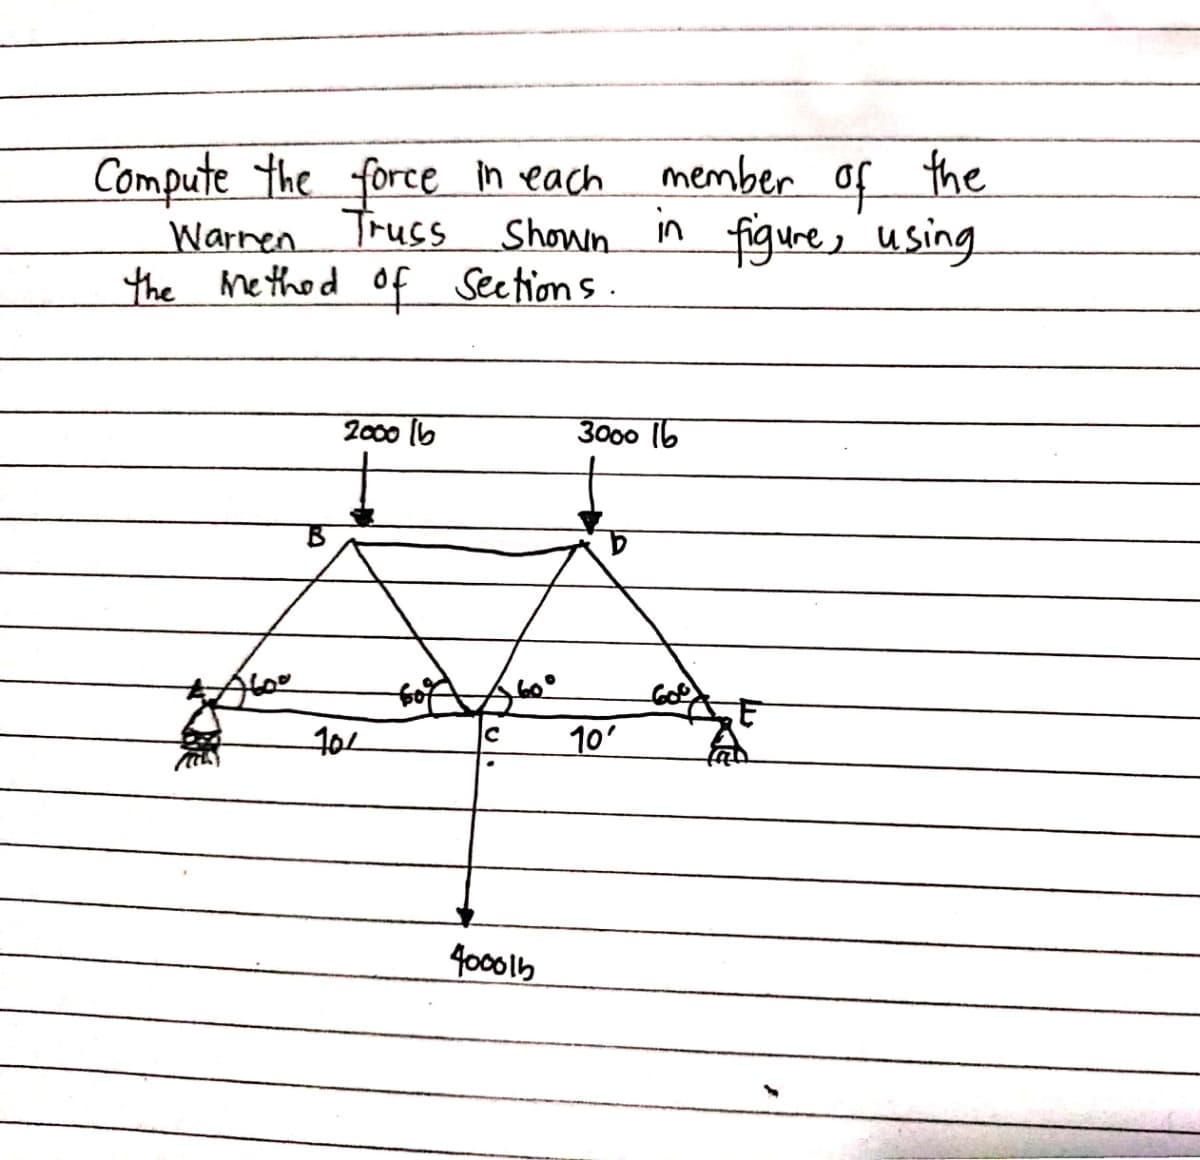 Compute the force in each member of the
Warren Truss Shown in figure, using
the Method of Sections.
2000 lb 3000 lb
B D
A 60° 60° 60° 60° E
10' C 10'
4000lb